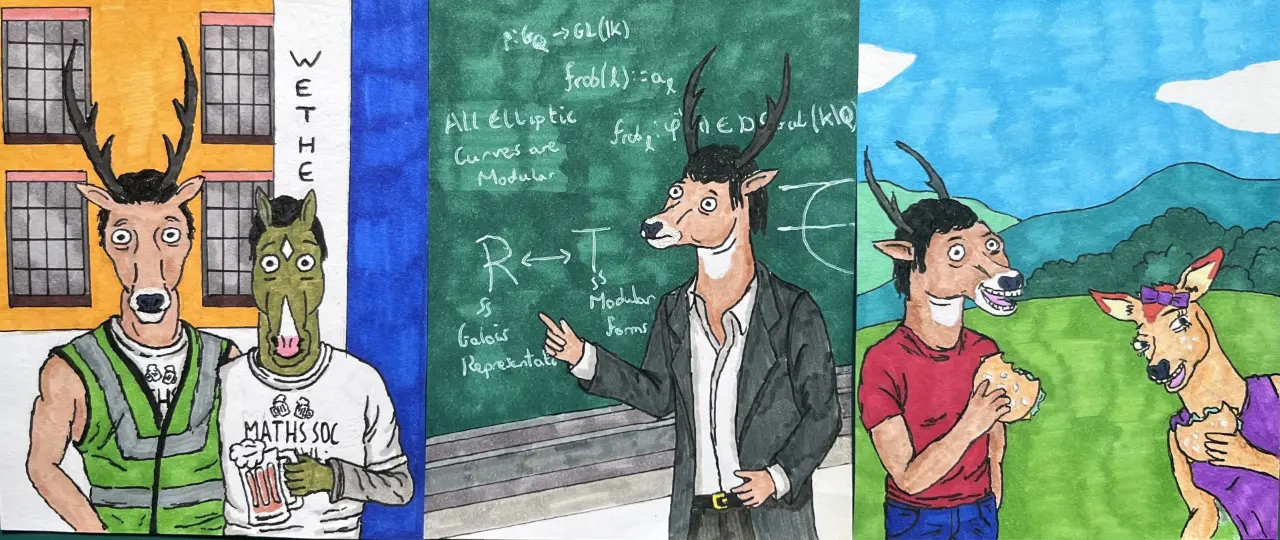 WETHE
MATHS SOC
ρ: G_Q → GL(𝕜)
frob(l) ::= a_l
All Elliptic
Curves are
Modular
frob_l :
Gal(K|Q)
R ↔ T
Galois
Modular
forms